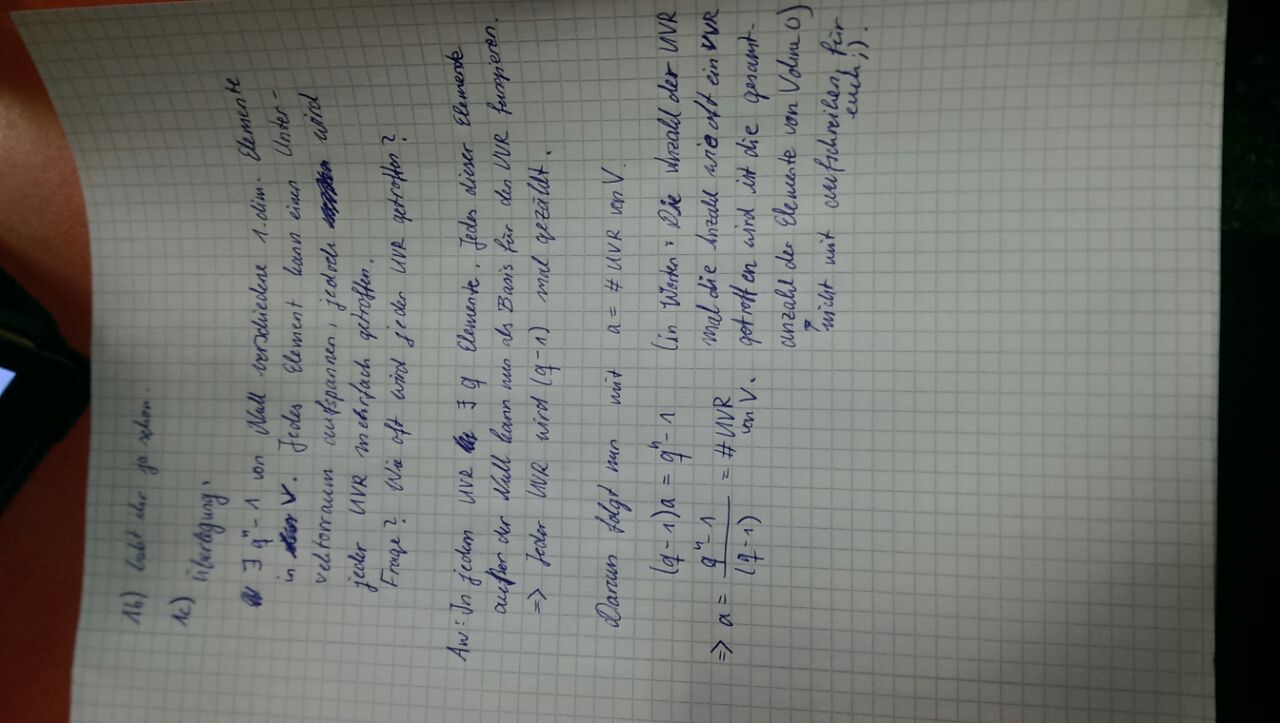 1b) habt ihr ja schon.
1c) Überlegung:
∃ qⁿ-1 von Null verschiedene 1.dim. Elemente
in V. Jedes Element kann einen Unter-
vektorraum aufspannen, jedoch wird
jeder UVR mehrfach getroffen.
Frage? Wie oft wird jeder UVR getroffen?
Aw: In jedem UVR ∃ q Elemente. Jedes dieser Elemente
außer der Null kann nun als Basis für den UVR fungieren.
=> Jeder UVR wird (q-1) mal gezählt.
Darum folgt nun mit a = # UVR von V.
(q-1)a = qⁿ-1 (in Worten: Die Anzahl der UVR
mal die Anzahl wie oft ein UVR
getroffen wird ist die gesamt-
anzahl der Elemente von V ohne 0)
=> a = (qⁿ-1)/(q-1) = # UVR von V.
nicht mit aufschreiben, für
euch ;).